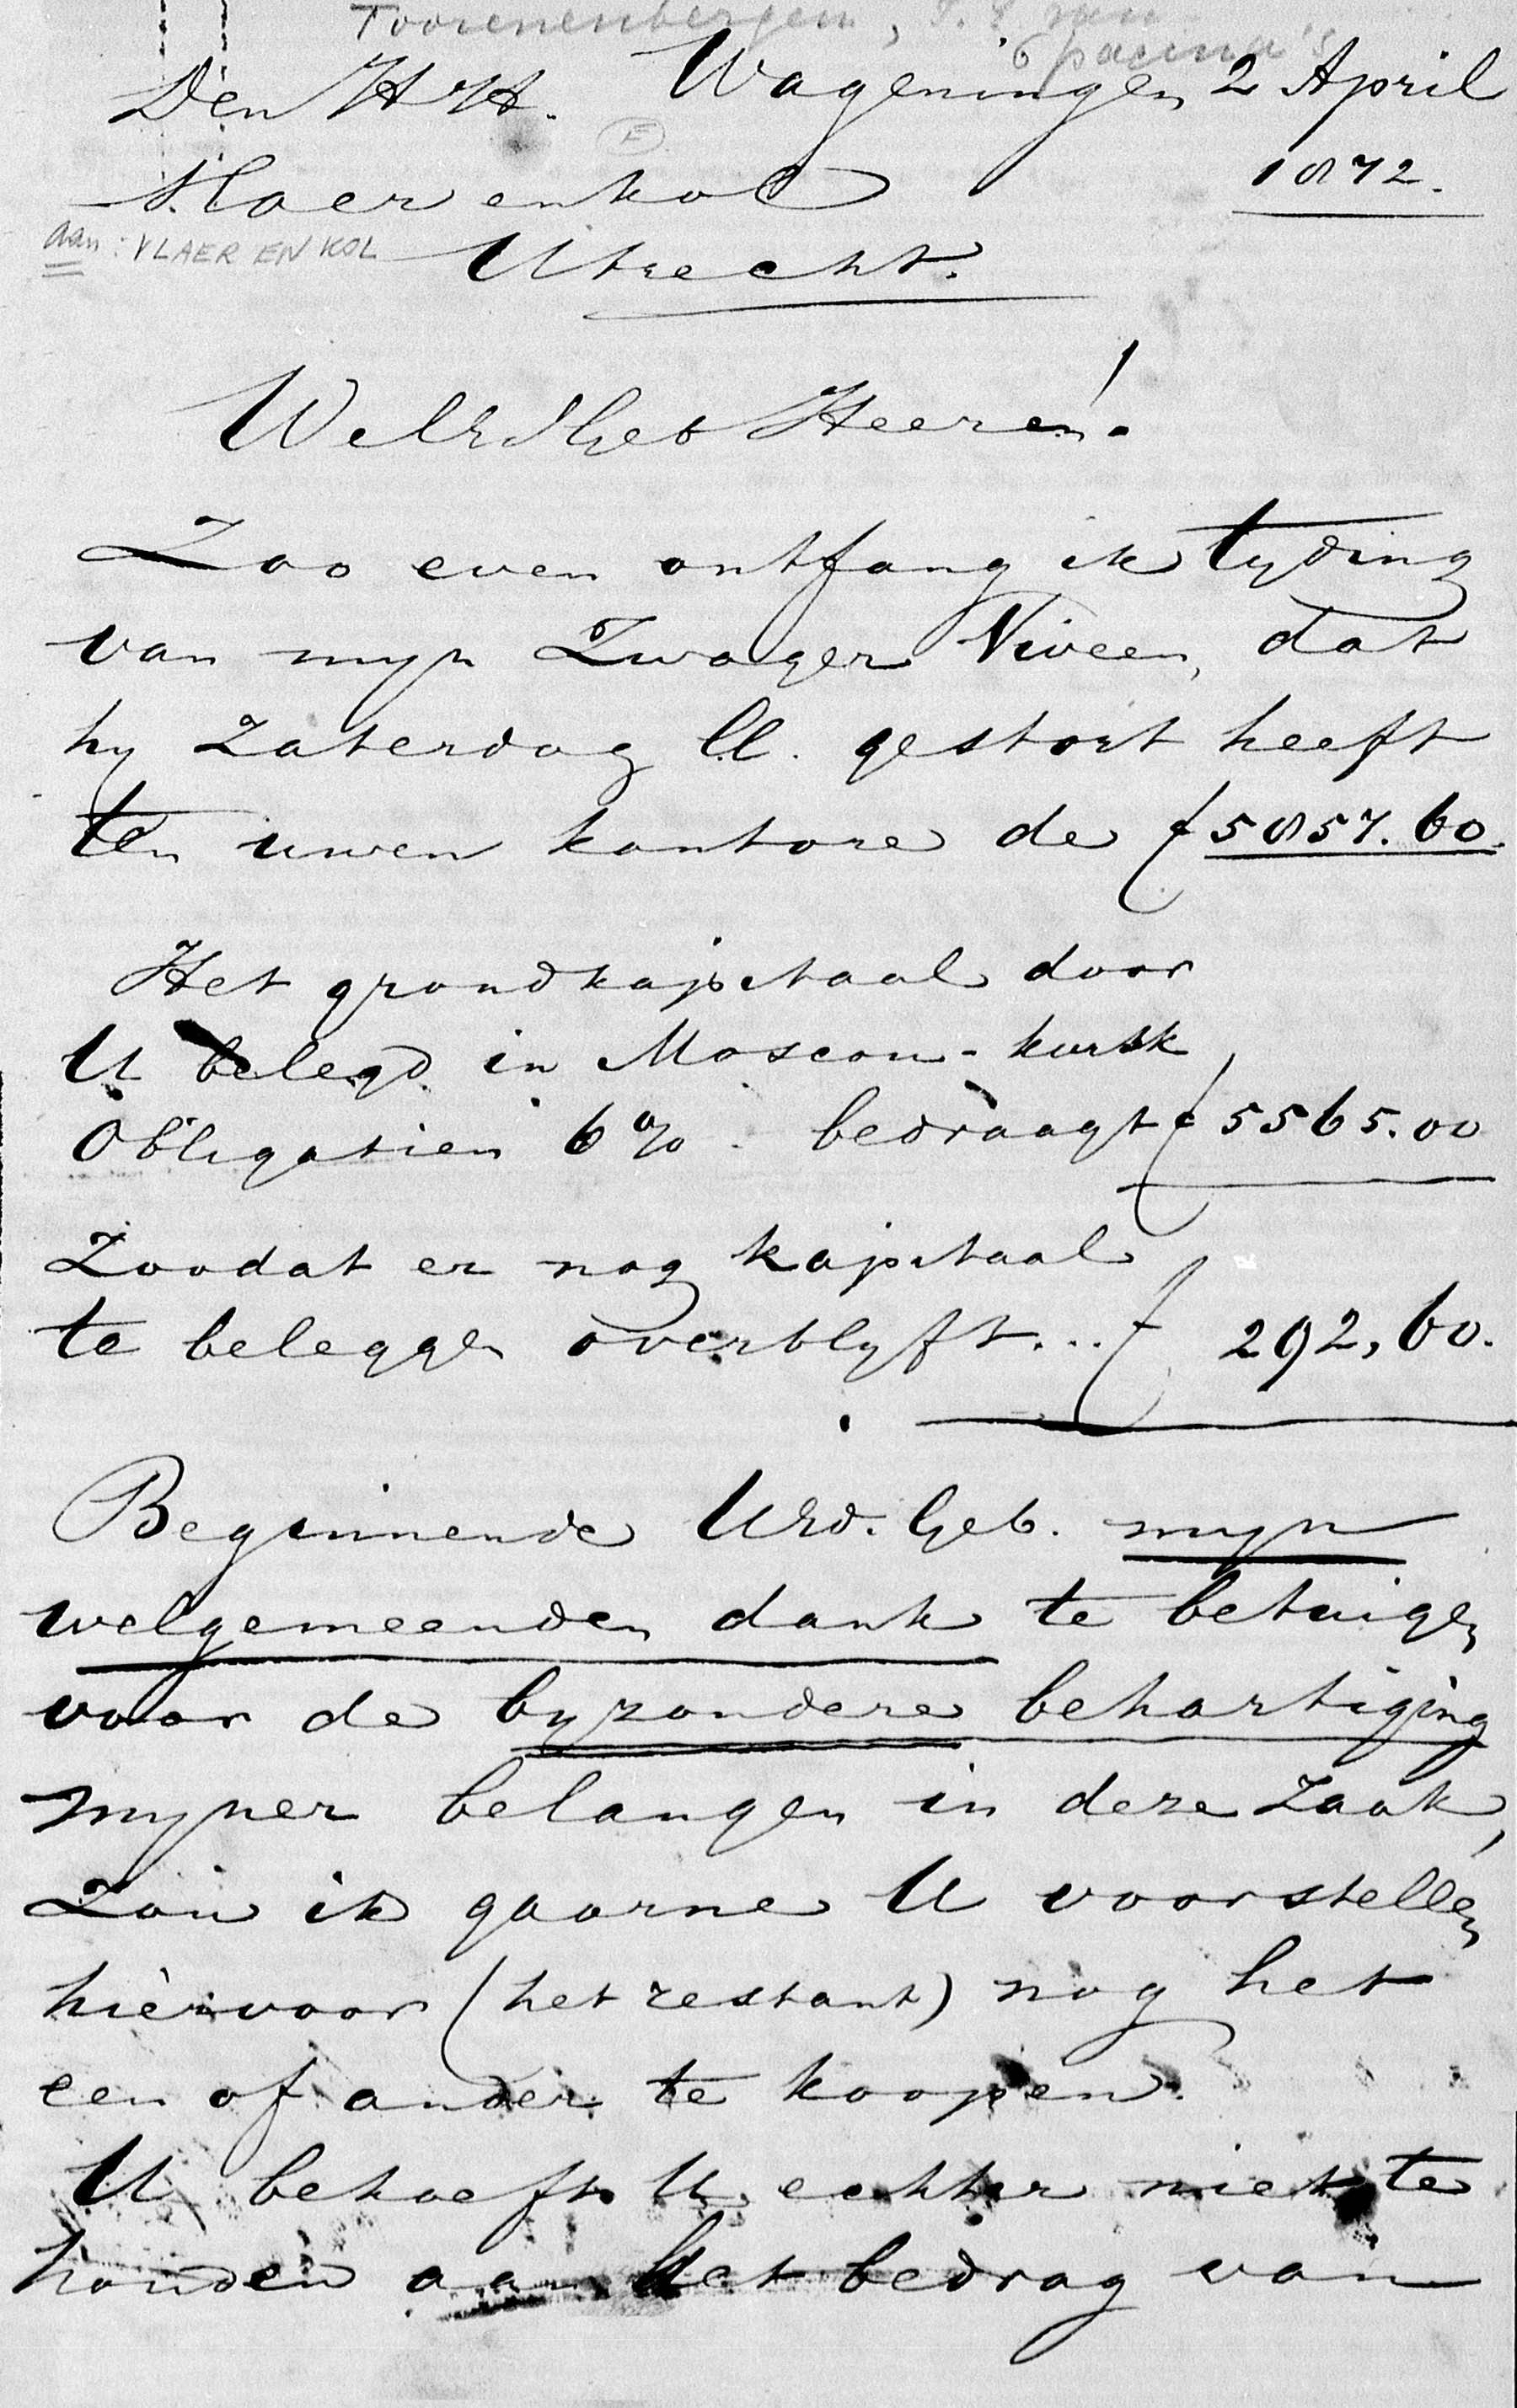 Toorenenbergen, van
6 pagina's
Den HH. Wageningen 2 April
Vlaer en kol 1872.
E
aan: VLAER EN KOL
Utrecht.
WelEdGeb Heeren!
Zoo even ontfang ik tyding
van myn Zwager Viveen, dat
hy Zaterdag ll. gestort heeft
ten uwen kantore de f 5857.60.
Het grondkapitaal door
U belegd in Moscou-kursk
Obligatien 6% bedraagt f 5565.00
Zoodat er nog kapitaal
te beleggen overblyft... f 292,60.
Beginnende UEd. Geb. myn
welgemeenden dank te betuigen
voor de byzondere behartiging
myner belangen in deze Zaak,
Zou ik gaarne U voorstellen
hiervoor (het restant) nog het
een of ander te koopen.
U behoeft U echter niet te
houden aan het bedrag van